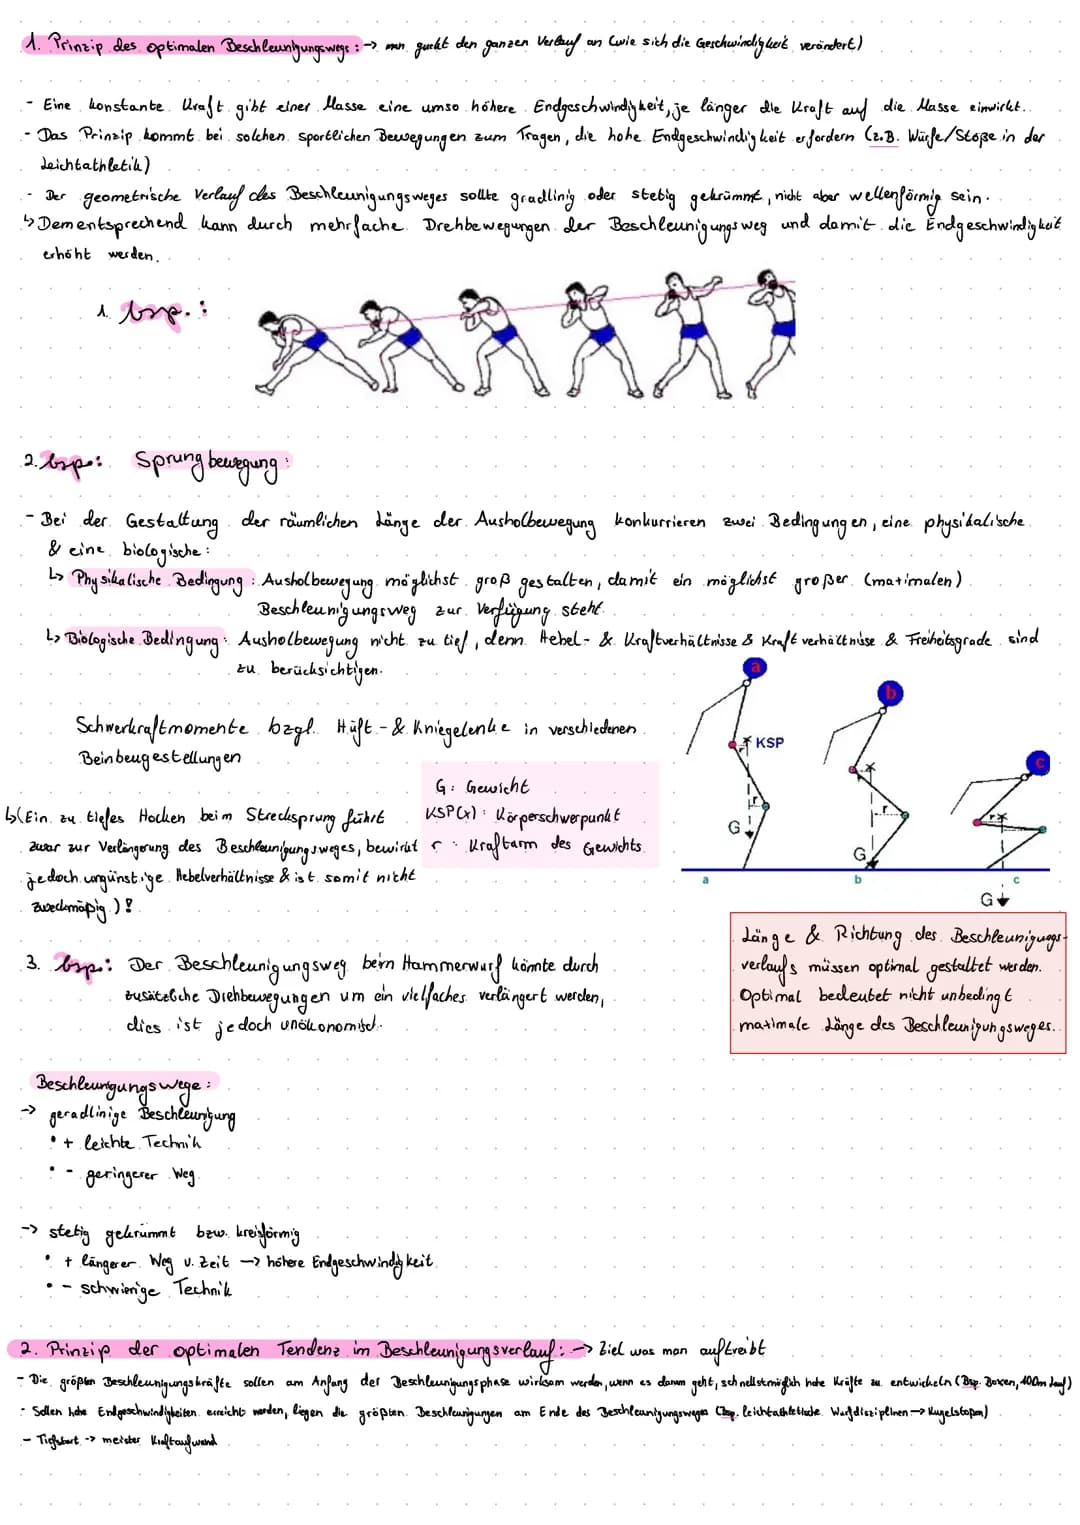 1. Prinzip des optimalen Beschleunigungswegs: -> man guckt den ganzen Verlauf an (wie sich die Geschwindigkeit verändert)
- Eine konstante Kraft gibt einer Masse eine umso höhere Endgeschwindigkeit, je länger die Kraft auf die Masse einwirkt.
- Das Prinzip kommt bei solchen sportlichen Bewegungen zum Tragen, die hohe Endgeschwindigkeit erfordern (z.B. Würfe/Stöße in der
Leichtathletik)
- Der geometrische Verlauf des Beschleunigungsweges sollte gradlinig oder stetig gekrümmt, nicht aber wellenförmig sein.
↳ Dementsprechend kann durch mehrfache Drehbewegungen der Beschleunigungsweg und damit die Endgeschwindigkeit
erhöht werden.
1. bsp.:
2. bsp.: Sprungbewegung:
- Bei der Gestaltung der räumlichen Länge der Ausholbewegung konkurrieren zwei Bedingungen, eine physikalische
& eine biologische:
↳ Physikalische Bedingung: Ausholbewegung möglichst groß gestalten, damit ein möglichst großer (maximalen)
Beschleunigungsweg zur Verfügung steht.
↳ Biologische Bedingung: Ausholbewegung nicht zu tief, denn Hebel- & Kraftverhältnisse & Kraftverhältnisse & Freiheitsgrade sind
zu berücksichtigen.
a
b
c
KSP
r
r
r
r
G
G
G
a
b
c
Schwerkraftmomente bzgl. Hüft- & Kniegelenke in verschiedenen
Beinbeugestellungen
G: Gewicht
KSP(x): Körperschwerpunkt
r: Kraftarm des Gewichts
↳(Ein zu tiefes Hocken beim Strecksprung führt
zwar zur Verlängerung des Beschleunigungsweges, bewirkt
jedoch ungünstige Hebelverhältnisse & ist somit nicht
zweckmäßig.)!
3. bsp.: Der Beschleunigungsweg beim Hammerwurf könnte durch
zusätzliche Drehbewegungen um ein vielfaches verlängert werden,
dies ist jedoch unökonomisch.
Länge & Richtung des Beschleunigungs-
verlaufs müssen optimal gestaltet werden.
Optimal bedeutet nicht unbedingt
maximale Länge des Beschleunigungsweges.
Beschleunigungswege:
-> geradlinige Beschleunigung
• + leichte Technik
• - geringerer Weg
-> stetig gekrümmt bzw. kreisförmig
• + längerer Weg u. Zeit -> höhere Endgeschwindigkeit
• - schwierige Technik
2. Prinzip der optimalen Tendenz im Beschleunigungsverlauf: -> Ziel was man auftreibt
- Die größten Beschleunigungskräfte sollen am Anfang der Beschleunigungsphase wirksam werden, wenn es darum geht, schnellstmöglich hohe Kräfte zu entwickeln (Bsp. Boxen, 100m Lauf)
- Sollen hohe Endgeschwindigkeiten erreicht werden, liegen die größten Beschleunigungen am Ende des Beschleunigungsweges (Bsp. leichtathletische Wurfdisziplinen -> Kugelstoßen)
- Tiefstart -> meister Kraftaufwand